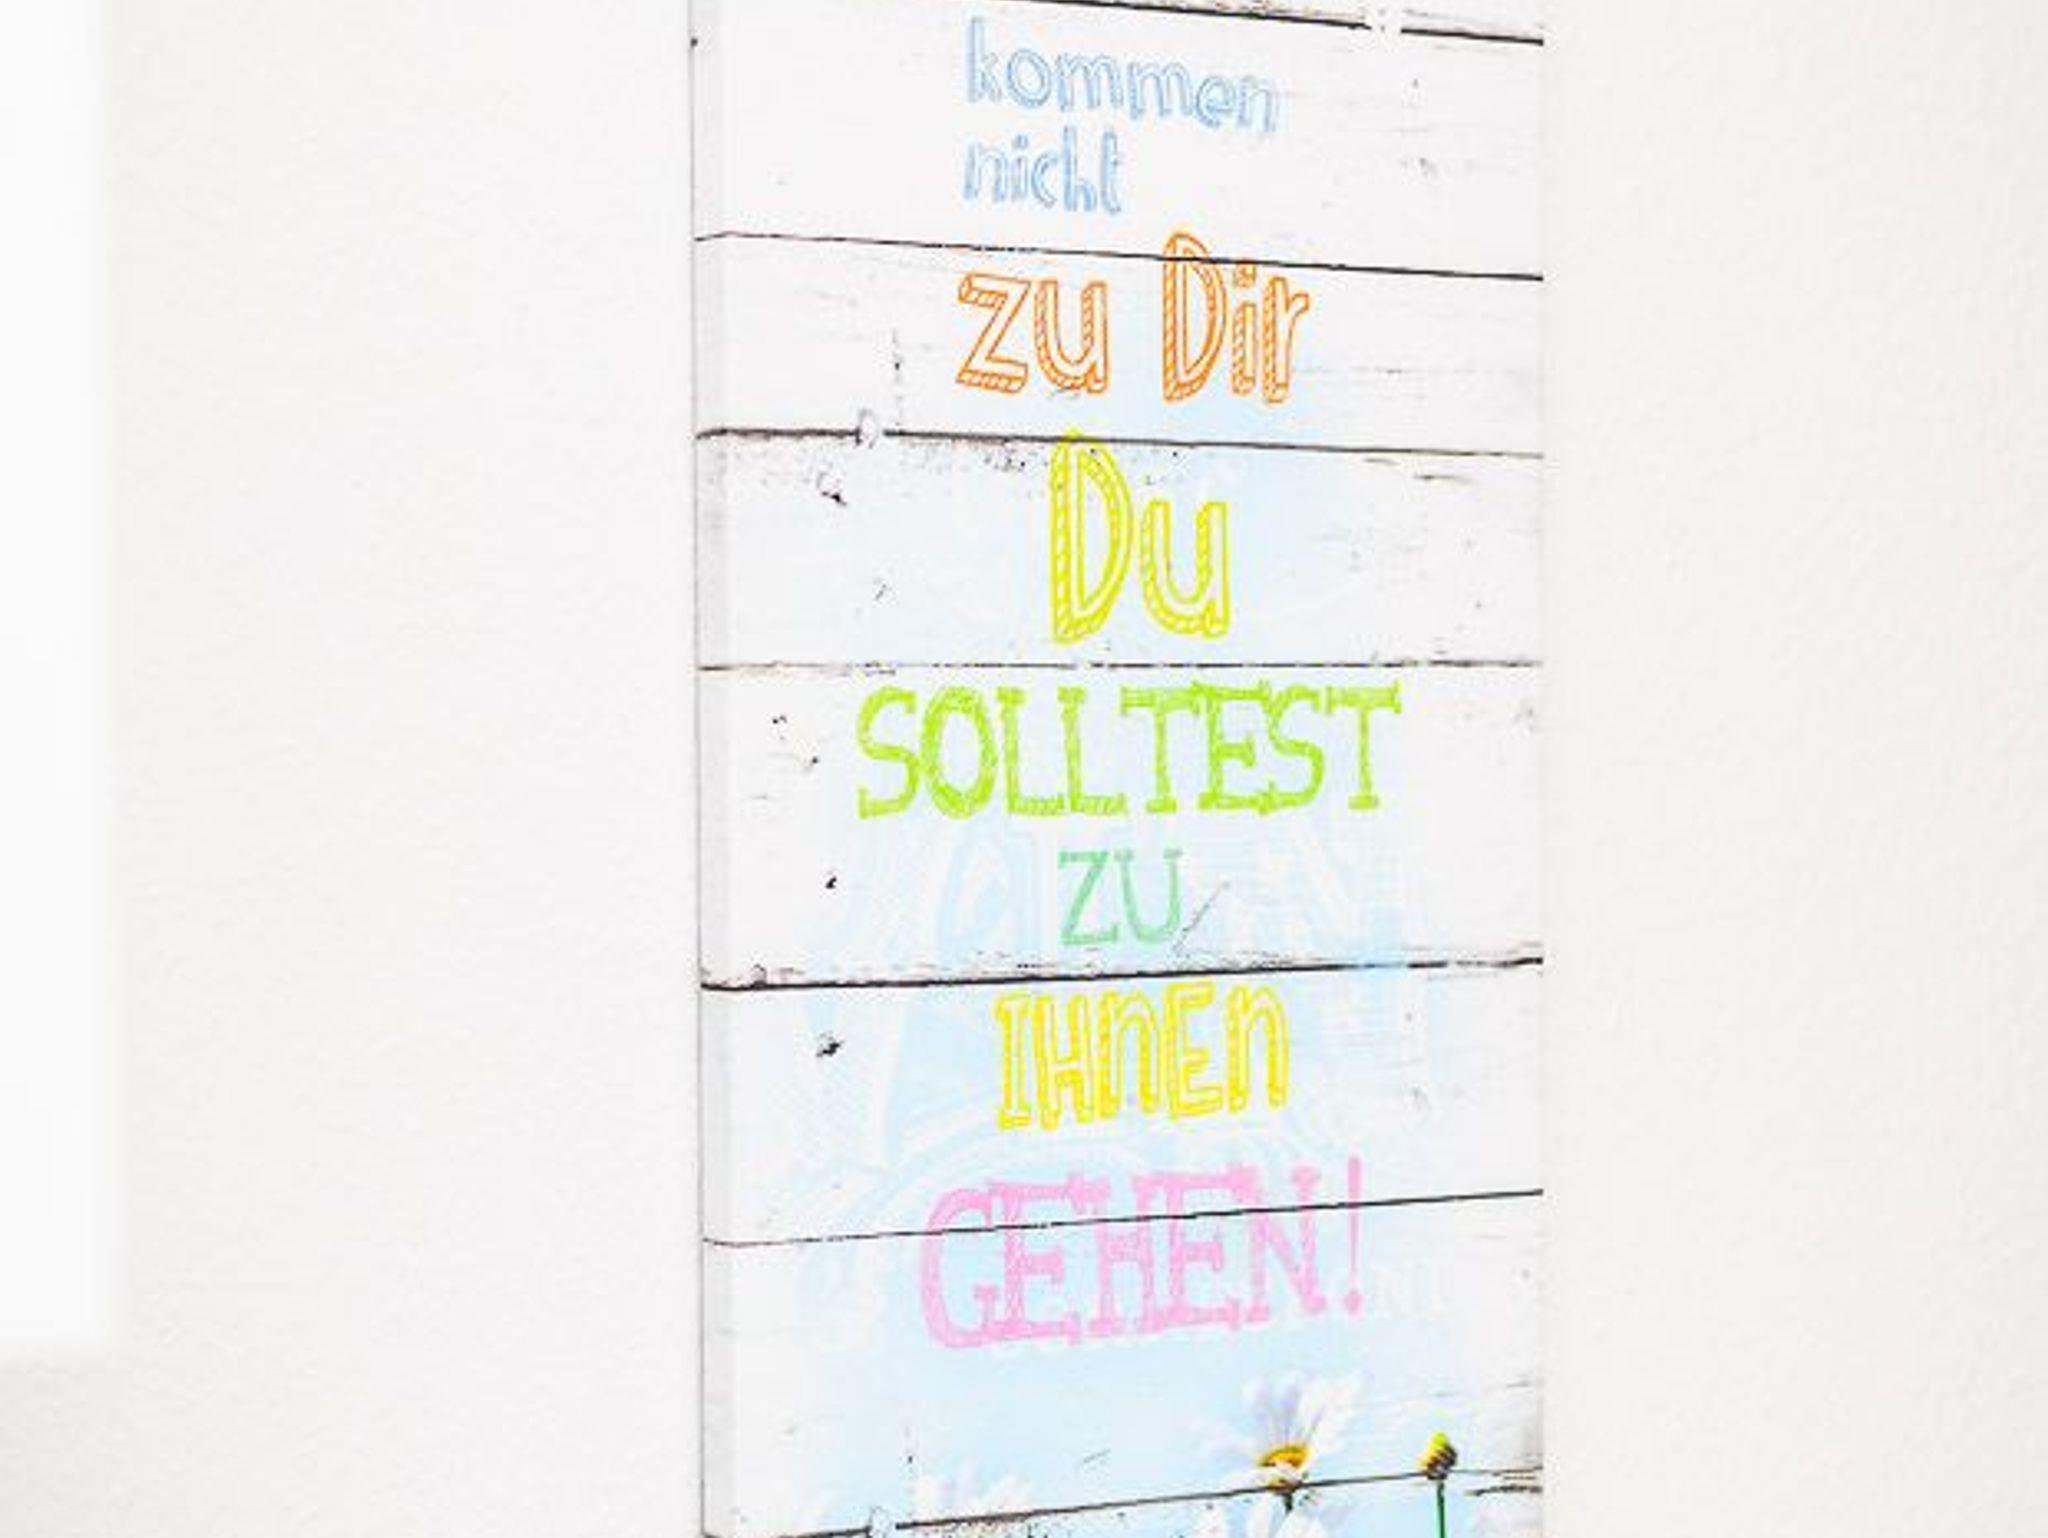 kommen
nicht
zu Dir
Du
SOLLTEST
ZU
IHnEn
GEHEN!